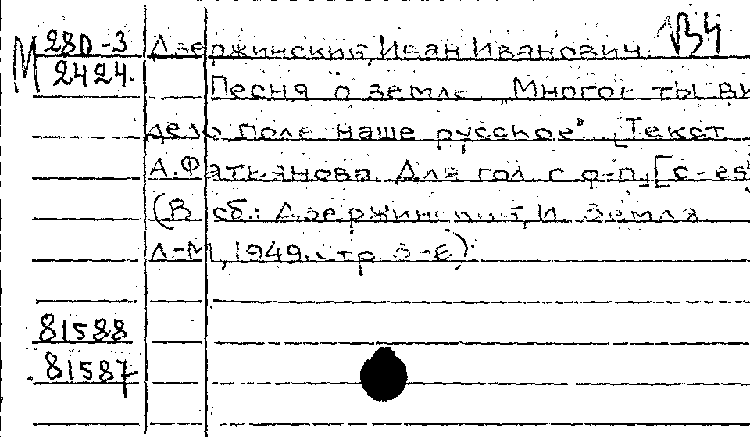 М 28D-3 Дзержинский, Иван Иванович. В4
2424. Песня о земле. „Многое ты ви
дело поле наше русское" [Текст
А. Фатьянова. Для гол. с ф-п.] [c-es
(В сб.: Дзержинский, И. Земля
Л-М, 1949. стр 3-6).
81588
81587